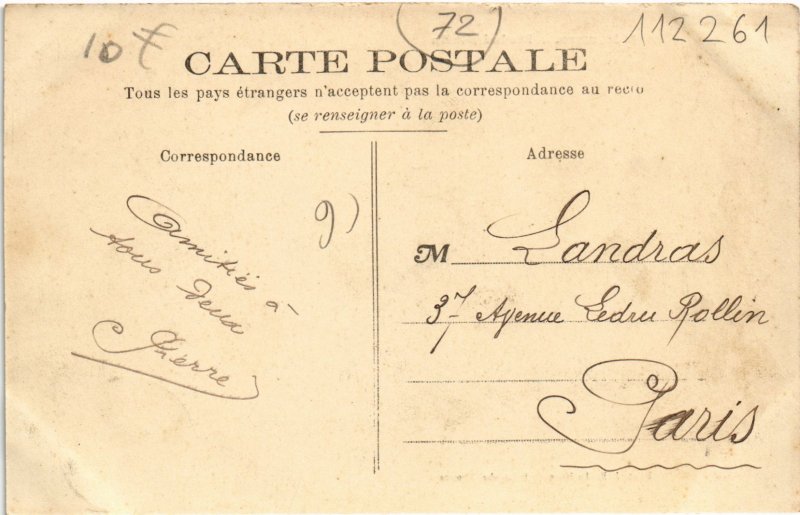 10 €
(72)
112261
CARTE POSTALE
Tous les pays étrangers n'acceptent pas la correspondance au recto
(se renseigner à la poste)
Correspondance
Adresse
9)
Amitiés à
tous deux
Pierre
M Landras
37 Avenue Ledru Rollin
Paris